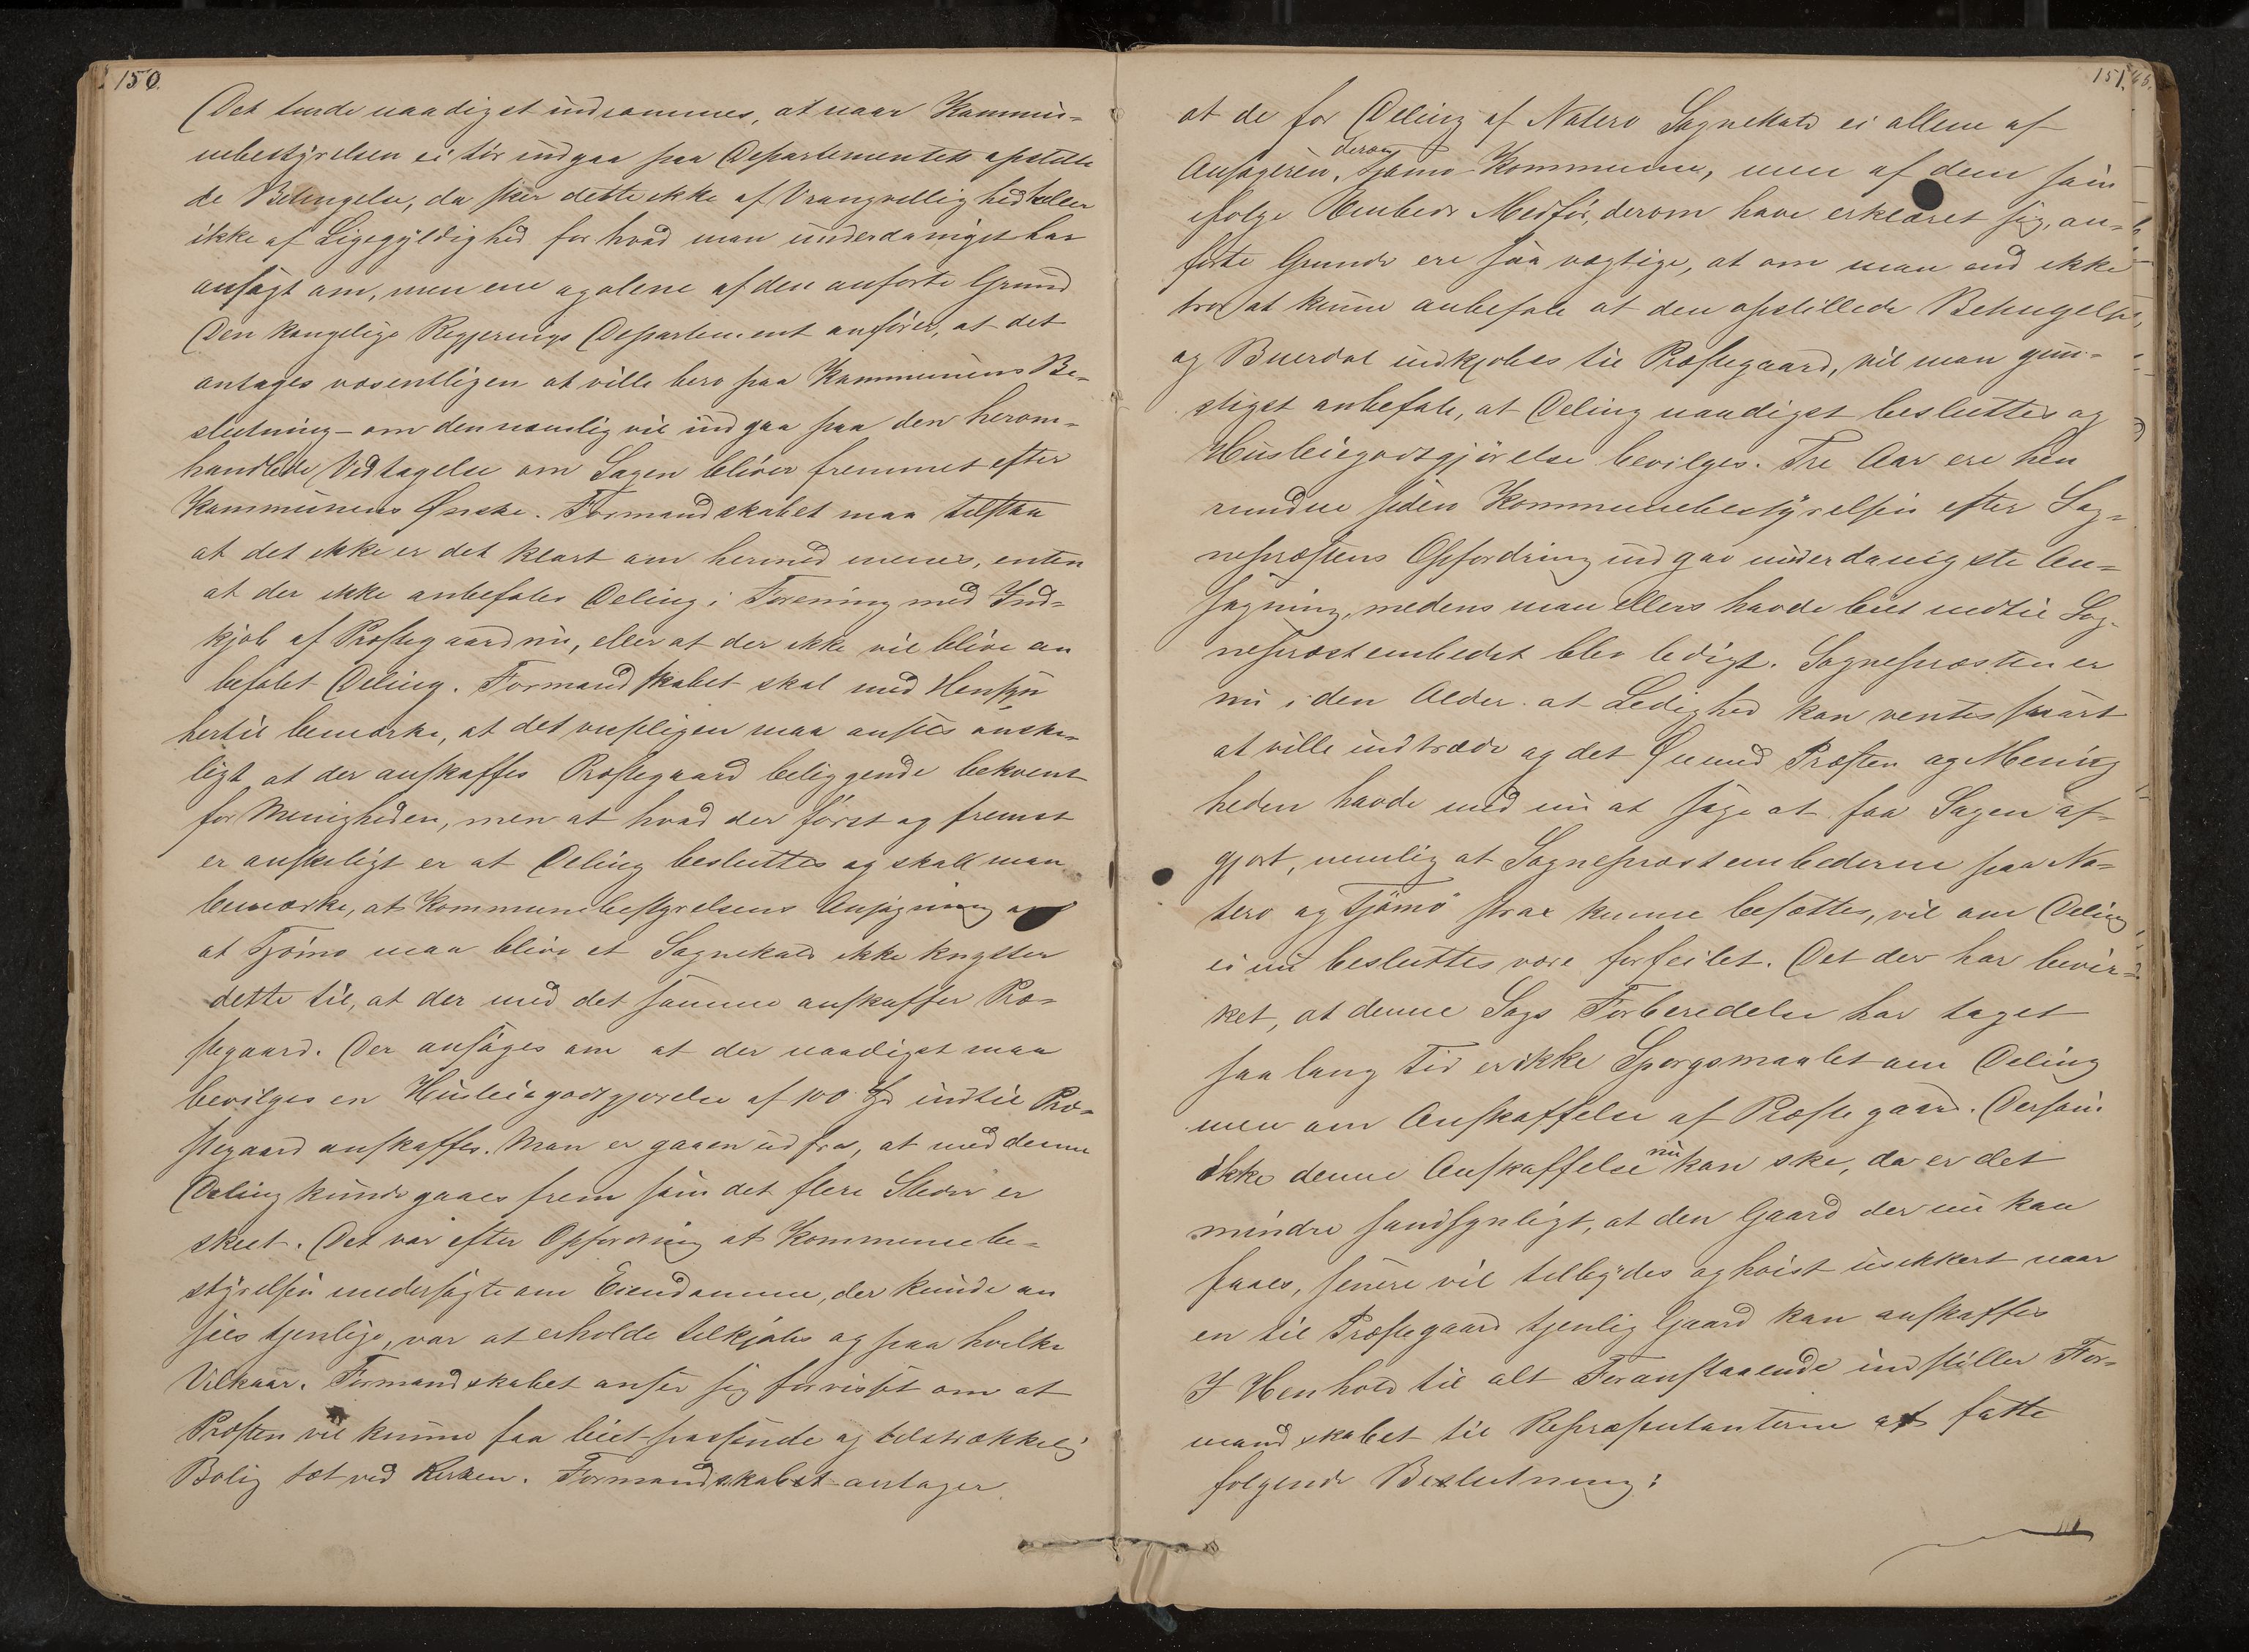 150.
Det turde naadigst indrømmes, at naar Kommu-
nebestyrelsen ei tør indgaa paa Departementets opstille
de Betingelse, da sker dette ikke af Vrangvillighed heller
ikke af Ligegyldighed for hvad man underdanigst har
ansøgt om, men ene og alene af den anførte Grund
Den kongelige Regjerings Departement anfører, at det
antages væsentligen at ville bero paa Kommunens Be-
slutning – om den nemlig vil indgaa paa den herom-
handlede Vedtagelse om Sagen bliver fremmet efter
Kommunens Ønske. Formandskabet maa tilstaa
at det ikke er det klart om hermed menes, enten
at der ikke anbefales Deling i Forening med Ind-
kjøb af Præstegaard nu, eller at der ikke vil blive an
befalet Deling. Formandskabet skal med Hensyn
hertil bemærke, at det vistligen maa ansees ønske-
ligt at der anskaffes Præstegaard beliggende bekvemt
for Menigheden, men at hvad der først og fremst
er ønskeligt er at Deling besluttes og skall man
bemærke, at Kommunebestyrelsens Ansøgning om
at Tjømø maa blive et Sognekald ikke knytter
dette til, at der med det samme anskaffes Præ-
stegaard. Der ansøges om at der naadigst maa
bevilges en Husleiegodtgjørelse af 100 Spd indtil Præ-
stegaard anskaffes. Man er gaaen ud fra, at med denne
Deling kunde gaaes frem som det flere Steder er
skeet. Det var efter Opfordring at Kommunebe-
styrelsen undersøgte om Eiendomme, der kunde an
sees tjenlige, var at erholde tilkjøbs og paa hvilke
Vilkaar. Formandskabet anser sig forvisset om at
Præsten vil kunne faa leiet passende og tilstrækkelig
Bolig tæt ved Kirken. Formandskabet antager
151.
at de for Deling af Nøterø Sognekald ei allene af
derom
Ansøgeren, Tjømø Kommune, men af dem som
ifølge Embeds Medfør, derom have erklæret sig, an-
førte Grunde ere saa vægtige, at om man end ikke
tror at kunne anbefale at den opstillede Betingelse,
og Buerdal indkjøbes til Præstegaard, vil man gun-
stigst anbefale, at Deling naadigst besluttes og
Husleiegodtgjørelse bevilges. Tre Aar ere hen
rundne siden Kommunebestyrelsen efter Sog-
nepræstens Opfordring indgav underdanigste An-
søgning, medens man ellers havde biet indtil Sog-
nepræstembedet blev ledigt. Sognepræsten er
nu i den Alder at Ledighed kan ventes snart
at ville indtræde og det Øiemed Præsten og Menig
heden havde med nu at søge at faa Sagen af-
gjort, nemlig at Sognepræstembederne paa Nø-
terø og Tjømø strax kunne besættes, vil om Deling
ei nu besluttes være forfeilet. Det der har bevir-
ket, at denne Sags Forberedelse har taget
saa lang Tid er ikke Spørgsmaalet om Deling
men om Anskaffelse af Præstegaard. Dersom
nu
ikke denne Anskaffelse kan ske, da er det
mindre sandsynligt, at den Gaard der nu kan
faaes, senere vil tilbydes og høist usikkert naar
en til Præstegaard tjenlig Gaard kan anskaffes
I Henhold til alt Foranstaaende indstiller For-
mandskabet til Repræsentanterne at fatte
følgende Beslutning: